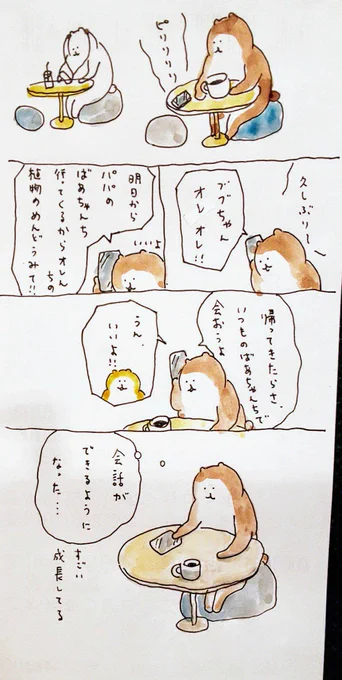 ピリリリリ
久しぶりー
ブブちゃん
オレオレ!!
明日から
パパの
ばあちゃんち
行ってくるからオレんちの
植物のめんどうみて!!
いいよ
帰ってきたらさ、
いつものばあちゃんちで
会おうよ
うん、
いいよ!!
会話が
できるように
なった…
すごい
成長してる